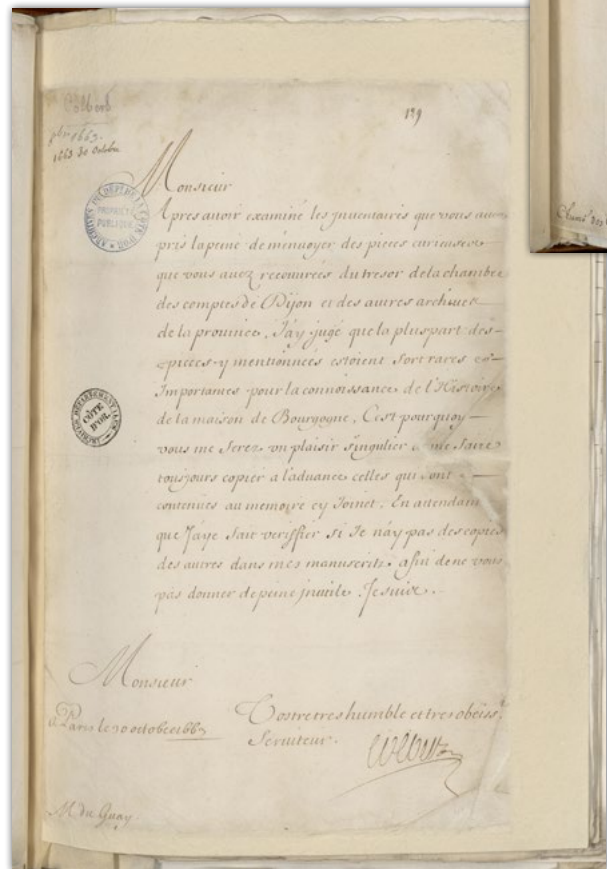 Colbert
8bre 1669.
1669 30 Octobre
129
Monsieur
Apres auoir examiné les Jnuentaires que vous auez
pris la peine de m'enuoyer des pieces curieuses
que vous auez recouurées du tresor de la chambre
des comptes de Dijon et des autres archiues
de la prouince, J'ay jugé que la pluspart des
pieces y mentionnées estoient fort rares et
Importantes pour la connoissance de l'Histoire
de la maison de Bourgogne, C'est pourquoy
vous me ferez vn plaisir singulier de me faire
tousjours copier a l'aduance celles qui sont
contenues au memoire cy Joinct, En attendant
que J'aye fait veriffier si Je n'ay pas des copies
des autres dans mes manuscrits, afin de ne vous
pas donner de peine jnutile. Je suis.
Monsieur
Vostre tres humble et tres obeiss.t
Seruiteur.
a Paris le 30 octobre
Colbert
M. du Guay
ARCHIVES DU DEPT DE LA COTE D'OR
PROPRIÉTÉ PUBLIQUE
ARCHIVES DEPARTEMENTALES
CÔTE D'OR